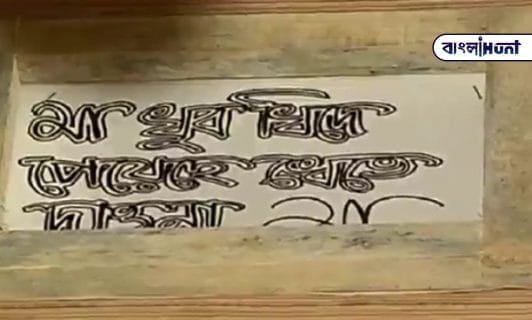 বাংলাHunt
মা খুব খিদে
পেয়েছে খেতে
দাওনা